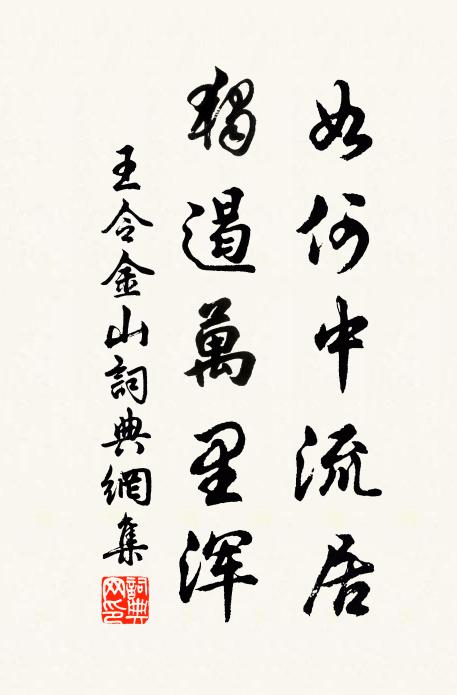 如何中流居
獨遏萬里渾
王令金山詞典網集
詞典网印